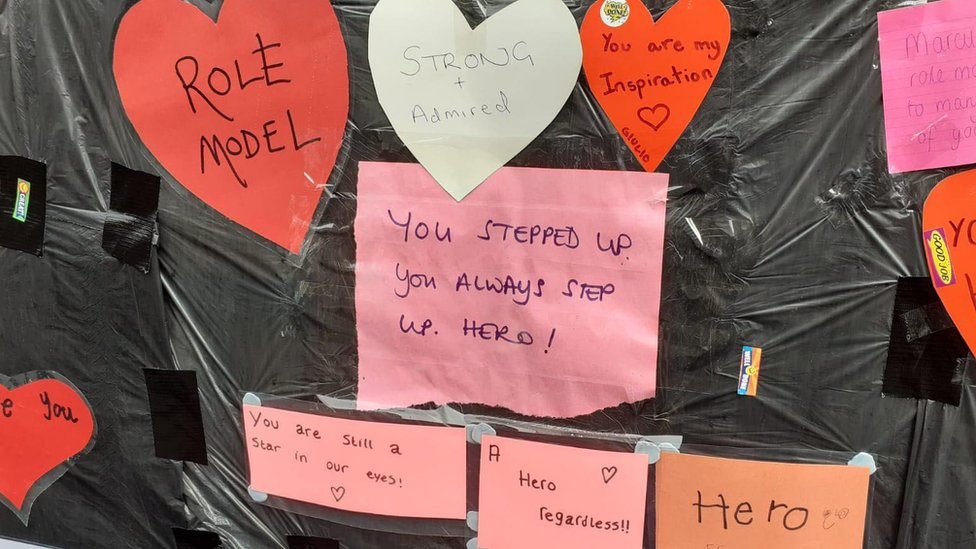 ROLE
MODEL
STRONG
+
Admired
WELL
DONE
You are my
Inspiration
GIULIO
Marcu
role mo
to man
of yo
GREAT
YOU STEPPED UP.
YOU ALWAYS STEP
UP. HERO!
GOOD JOB
Yo
WELL
DONE
e you
You are still a
star in our eyes!
A
Hero
regardless!!
Hero